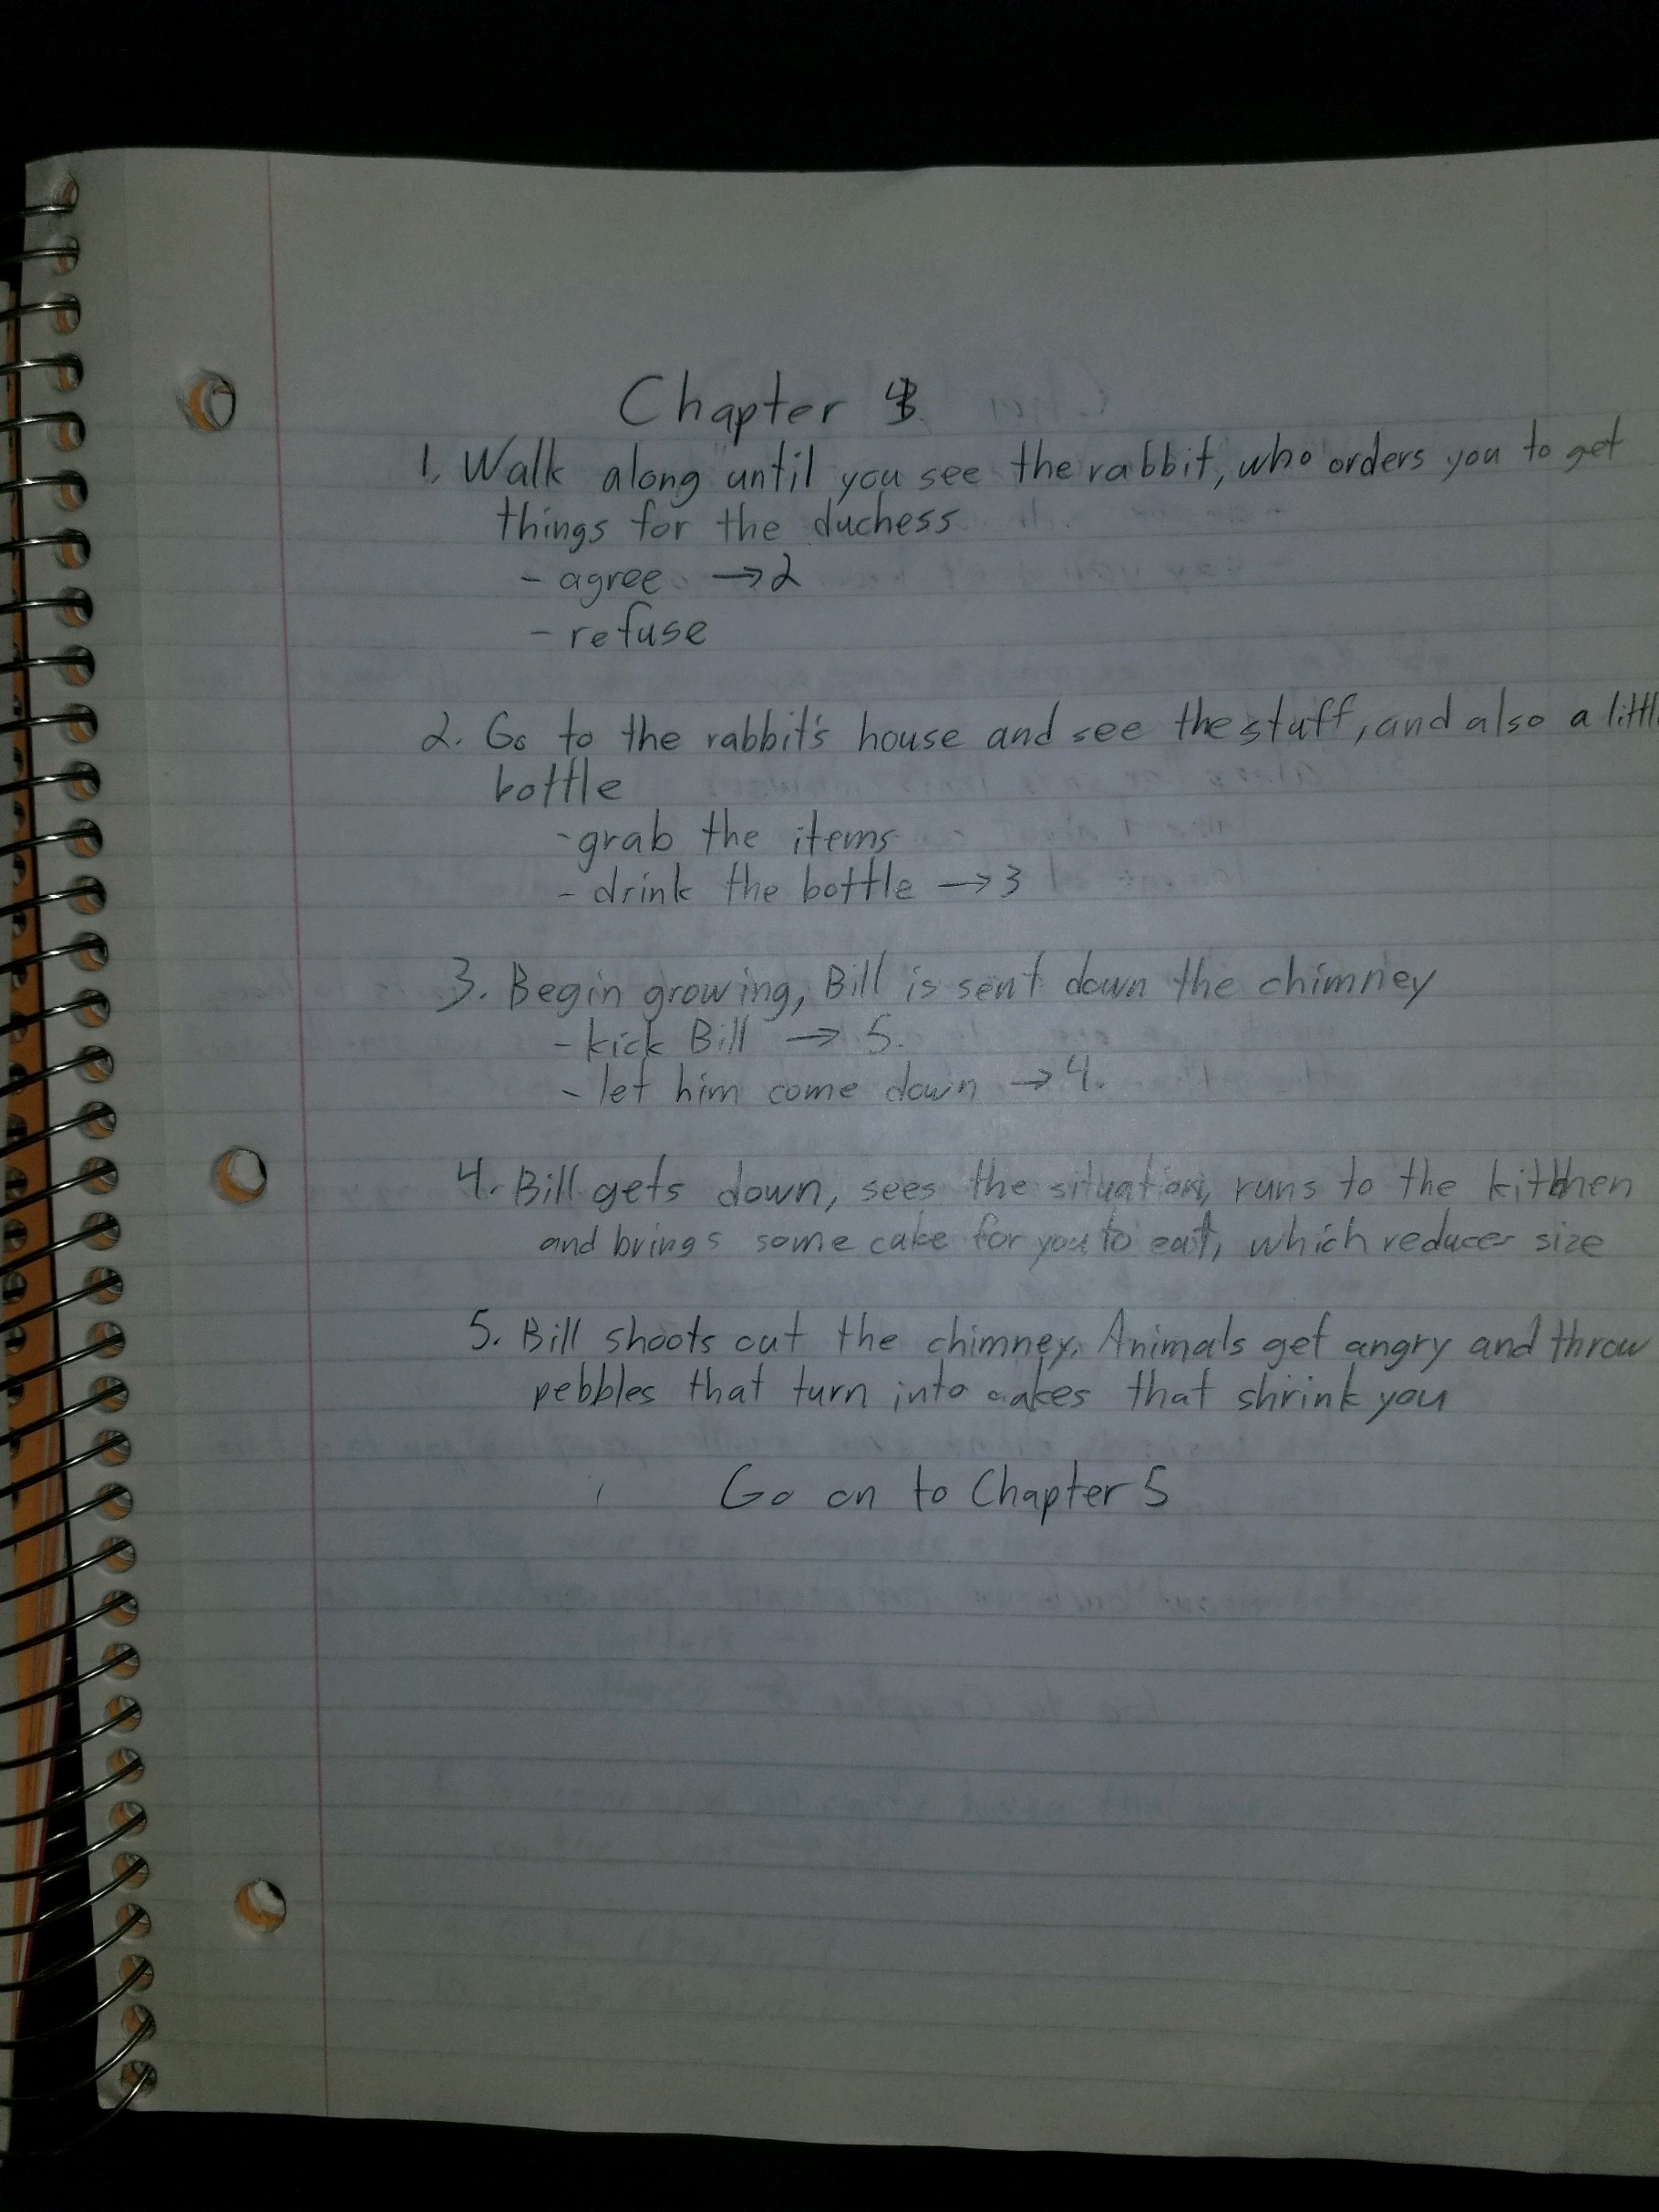 Chapter 4
1. Walk along until you see the rabbit, who orders you to get
things for the duchess
- agree → 2
- refuse
2. Go to the rabbit's house and see the stuff, and also a littl
bottle
- grab the items
- drink the bottle → 3
3. Begin growing, Bill is sent down the chimney
- kick Bill → 5.
- let him come down → 4.
4. Bill gets down, sees the situation, runs to the kitchen
and brings some cake for you to eat, which reduces size
5. Bill shoots out the chimney. Animals get angry and throw
pebbles that turn into cakes that shrink you
Go on to Chapter 5